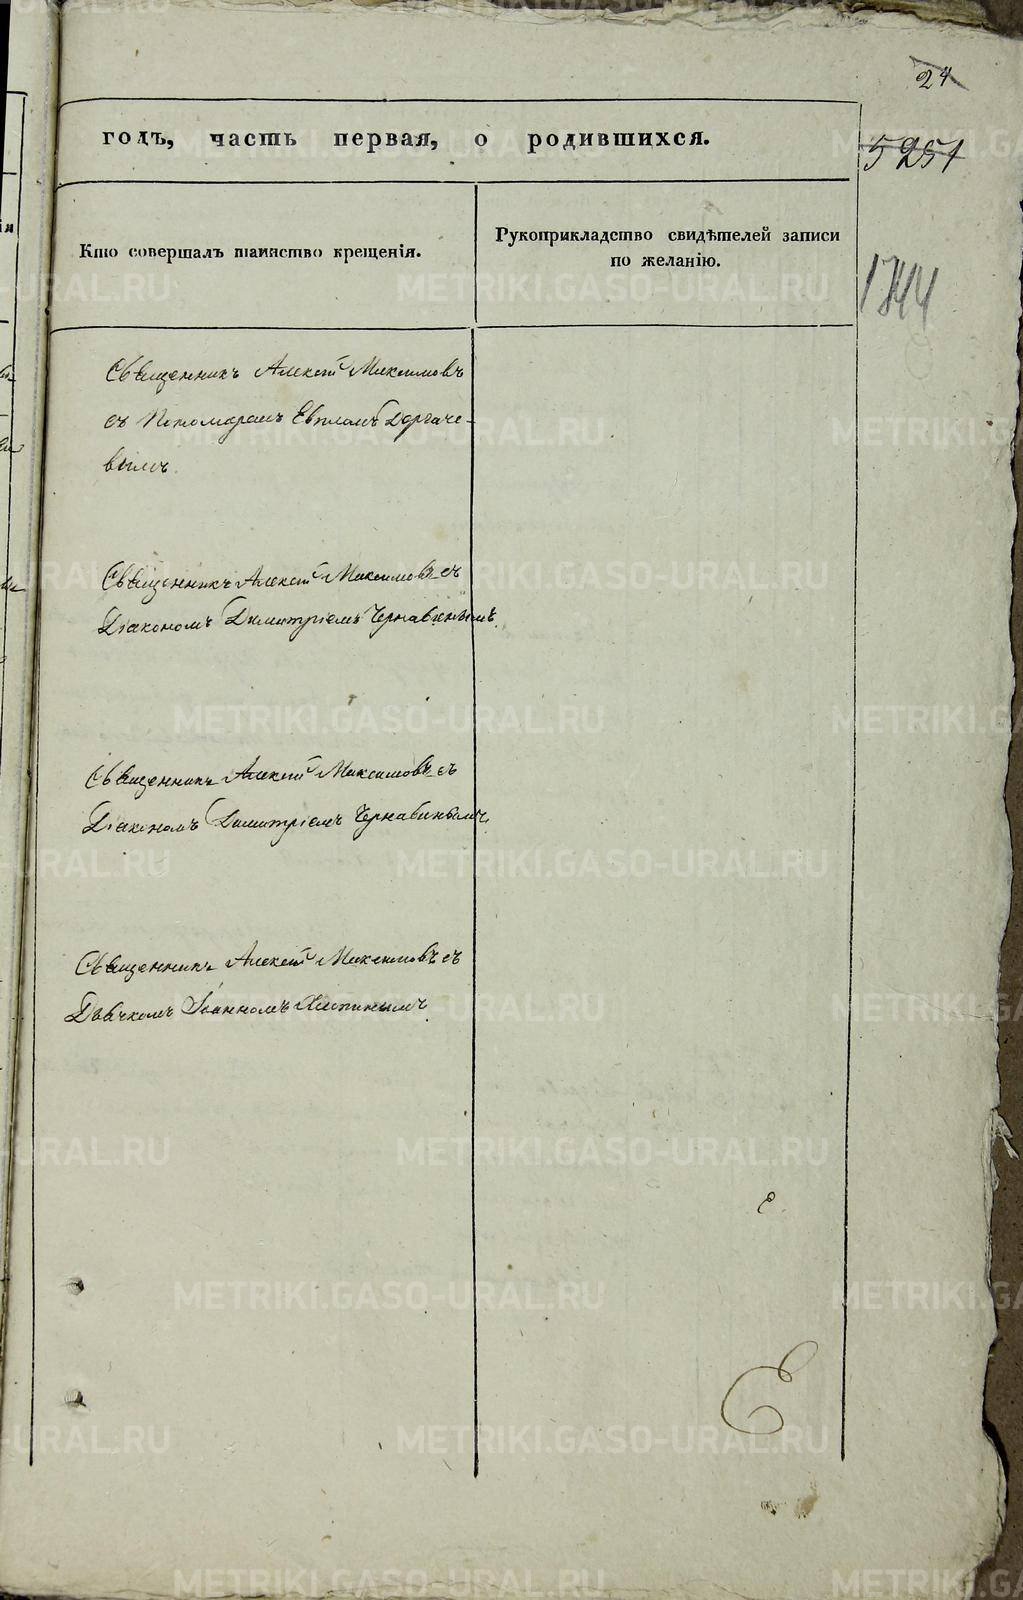 24
годъ, часть первая, о родившихся.
5251
Кто совершалъ таинство крещенія.
Рукоприкладство свидѣтелей записи
по желанію.
1744
Священникъ Алексій Максимовъ
съ Пономаремъ Евпломъ Дергаче-
вымъ.
Священникъ Алексій Максимовъ съ
Діакономъ Димитріемъ Чернавинымъ.
Священникъ Алексій Максимовъ съ
Діакономъ Димитріемъ Чернавинымъ.
Священникъ Алексій Максимовъ съ
Дьячкомъ Іоанномъ
METRIKI.GASO-URAL.RU